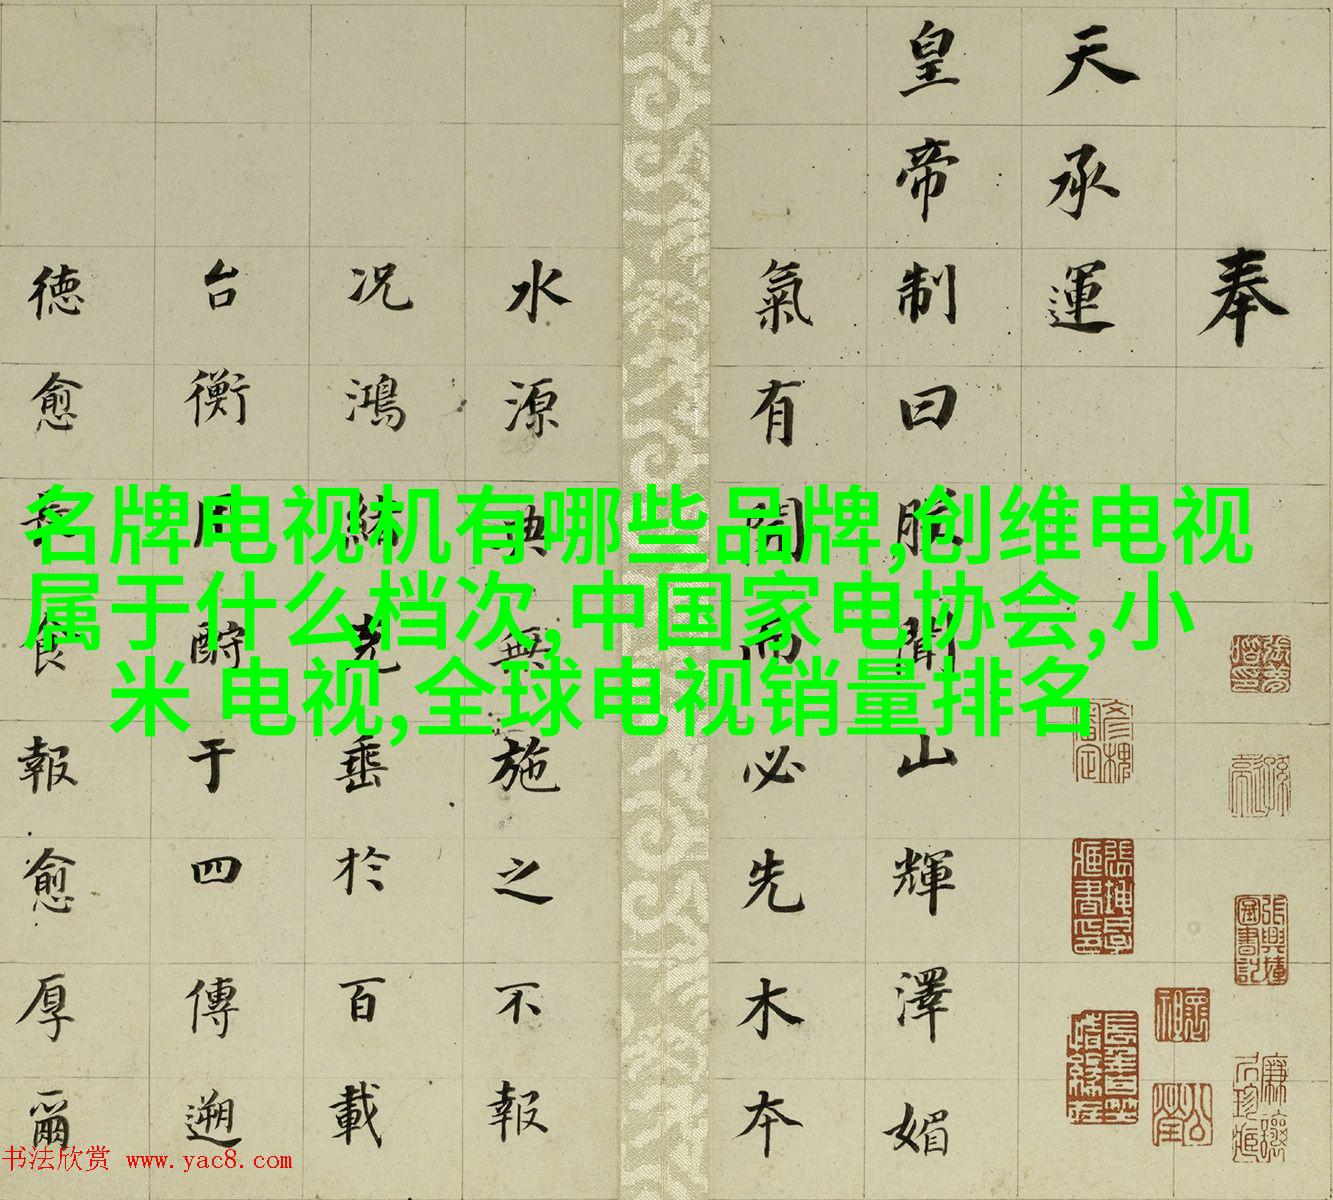 奉
天承運
皇帝制曰朕聞山輝澤媚
氣有開而必先木本
水源典無施之不報
況鴻緒克垂於百載
台衡用于四傳遡
德愈長食報愈厚爾
名牌电视机有哪些品牌,创维电视
属于什么档次,中国家电协会,小
米 电视,全球电视销量排名
书法欣赏 www.yac8.com